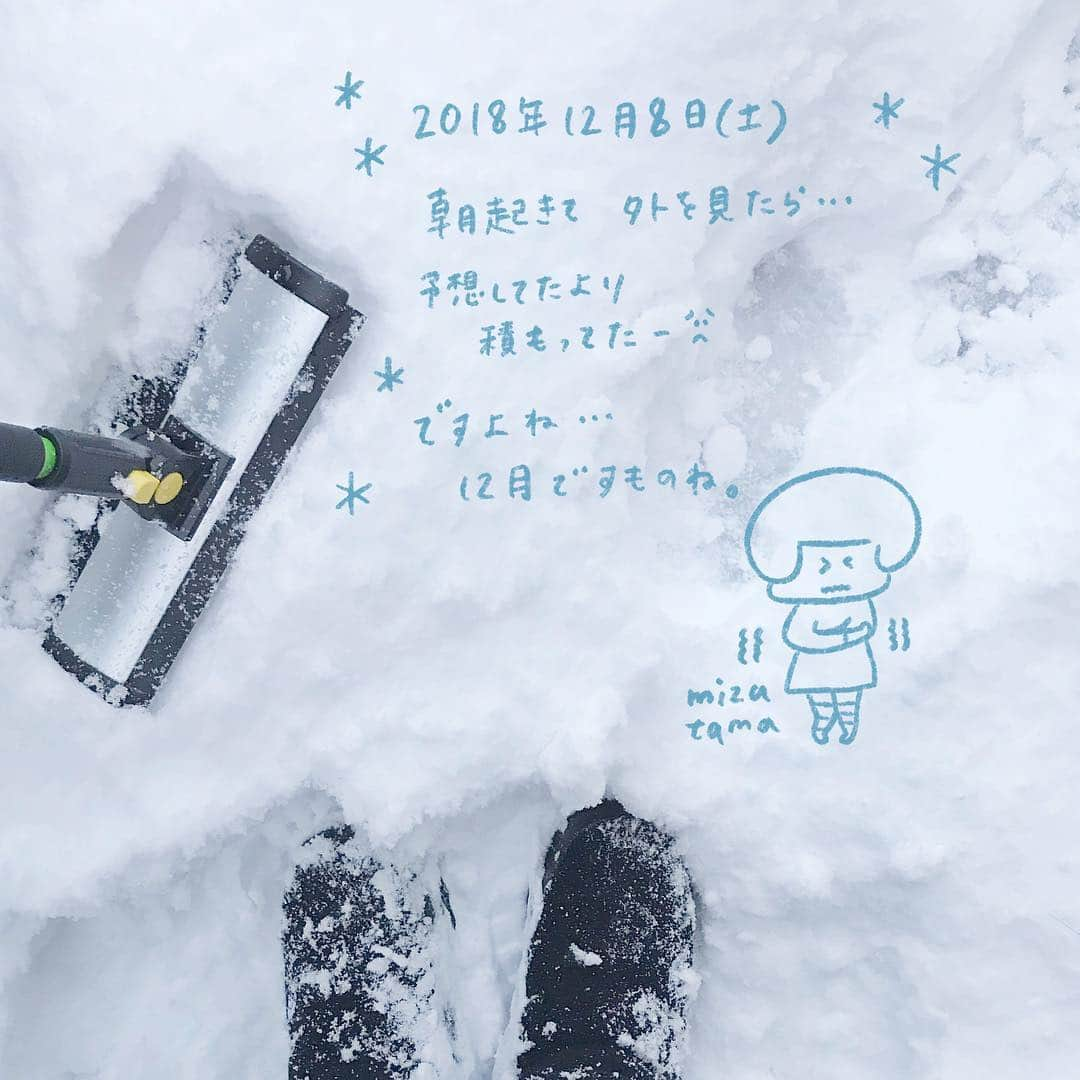 2018年12月8日(土)
朝起きて 外を見たら…
予想してたより
積もってたー
ですよね…
12月ですものね。
mizu
tama